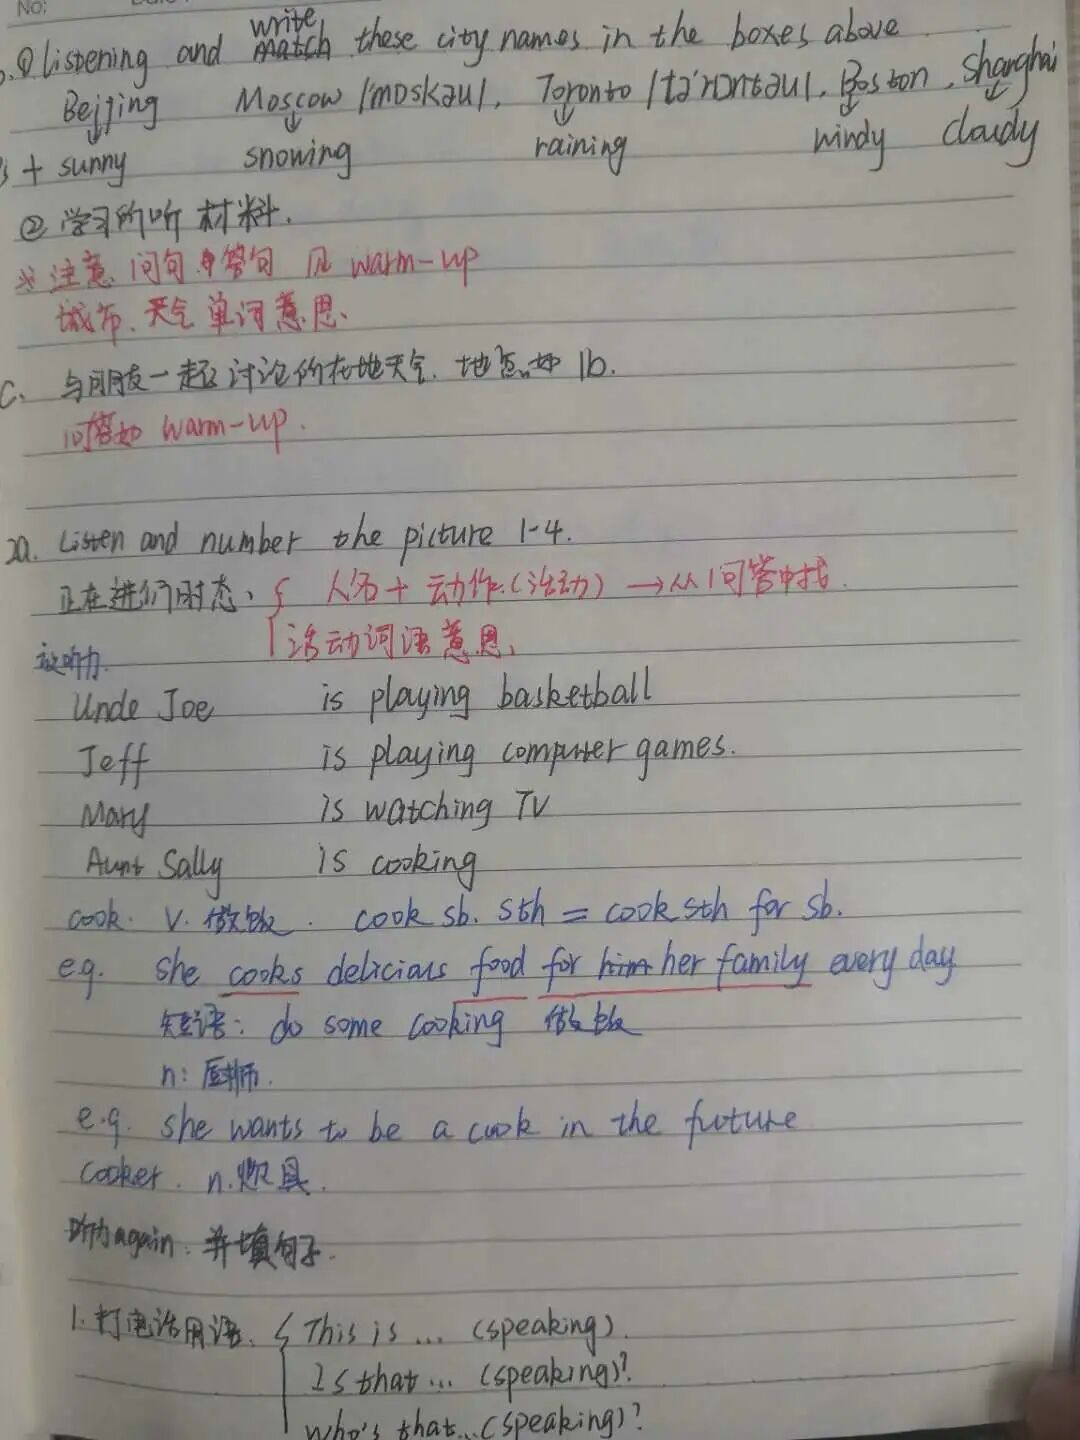 No:
① listening and write match these city names in the boxes above
Beijing Moscow /'mɒskəʊ/, Toronto /tə'rɒntəʊ/, Boston, Shanghai
+ sunny snowing raining windy cloudy
② 学习的听材料.
※注意 问句 答句 见 warm-up
城市、天气单词意思、
C. 与朋友一起讨论所在地天气. 地点如 1b.
问答如 warm-up.
2a. Listen and number the picture 1-4.
正在进行时态、{ 人名 + 动作(活动) → 从问答中找.
活动词语意思、
放听力.
Uncle Joe is playing basketball
Jeff is playing computer games.
Mary is watching TV
Aunt Sally is cooking
cook. v. 做饭. cook sb. sth = cook sth for sb.
e.g. she cooks delicious food for him her family every day
短语: do some cooking 做饭
n: 厨师.
e.g. she wants to be a cook in the future
cooker. n. 炊具.
听力again. 并填句子.
1. 打电话用语. { This is ... (speaking).
Is that ... (speaking)?
Who's that ... (speaking)?